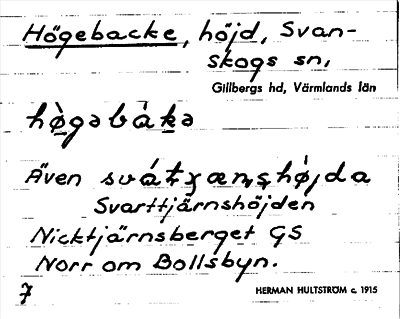 Högebacke, höjd, Svan-
skogs sn,
Gillbergs hd, Värmlands län
hø̀gəbákə
Även
Svarttjärnshöjden
Nicktjärnsberget GS
Norr om Bollsbyn.
7
HERMAN HULTSTRÖM c. 1915